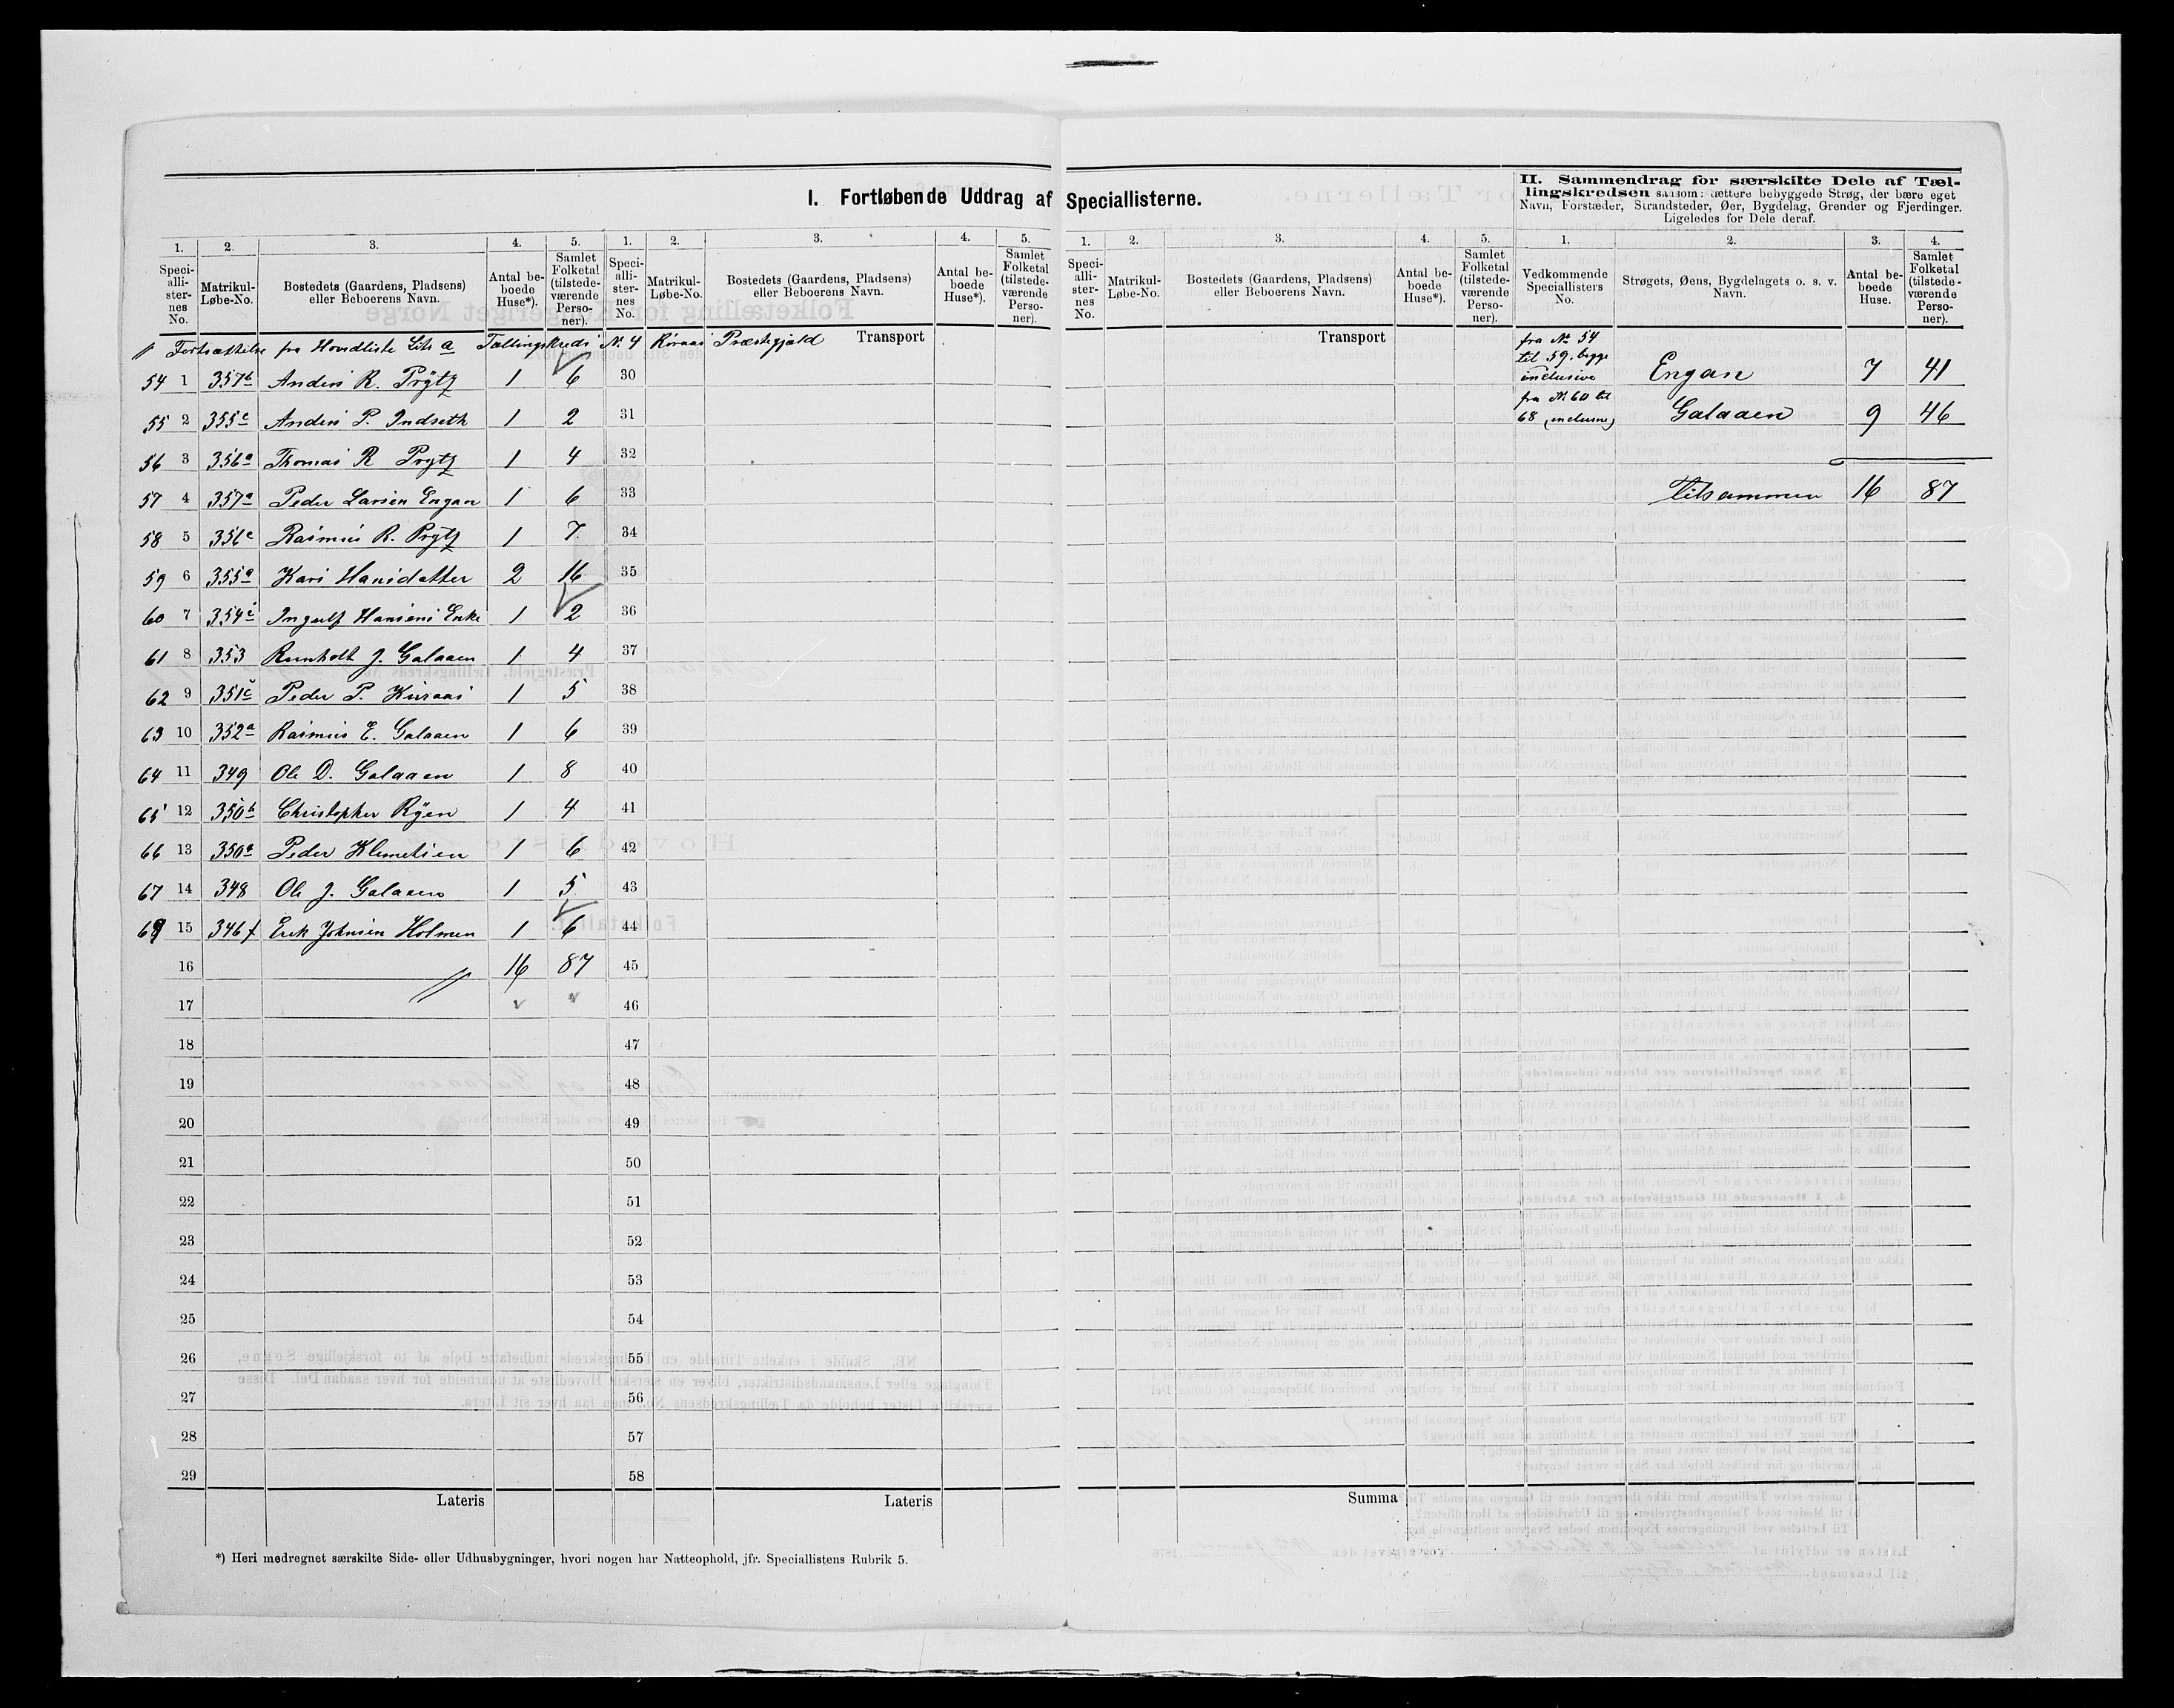 I. Fortløbende Uddrag af Speciallisterne.
II. Sammendrag for særskilte Dele af Tæl-
lingskredsen saasom: tættere bebyggede Strøg, der bære eget
Navn, Forstæder, Strandsteder, Øer, Bygdelag, Grender og Fjerdinger.
Ligeledes for Dele deraf.
1. 2. 3. 4. 5. 1. 2. 3. 4. 5. 1. 2. 3. 4. 5. 1. 2. 3. 4.
Speci-alli-ster-nes No. Matrikul-Løbe-No. Bostedets (Gaardens, Pladsens) eller Beboerens Navn. Antal be-boede Huse*). Samlet Folketal (tilstede-værende Perso-ner).
Speci-alli-ster-nes No. Matrikul-Løbe-No. Bostedets (Gaardens, Pladsens) eller Beboerens Navn. Antal be-boede Huse*). Samlet Folketal (tilstede-værende Perso-ner).
Speci-alli-ster-nes No. Matrikul-Løbe-No. Bostedets (Gaardens, Pladsens) eller Beboerens Navn. Antal be-boede Huse*). Samlet Folketal (tilstede-værende Perso-ner).
Vedkommende Speciallisters No. Strøgets, Øens, Bygdelagets o. s. v. Navn. Antal be-boede Huse. Samlet Folketal (tilstede-værende Perso-ner).
Fortsættelse fra Hovedliste Litr a Tællingskreds N. 4 Röraas Præstegjæld Transport Transport
54 1 357b Anders R. Prÿtz 1 6 30
55 2 355c Anders P. Indseth 1 2 31
56 3 356a Thomas R Prytz 1 4 32
57 4 357a Peder Larsen Engan 1 6 33
58 5 356c Rasmus R. Prytz 1 7 34
59 6 355a Kari Hansdatter 2 16 35
60 7 354c Ingulf Hansens Enke 1 2 36
61 8 353 J. Galaaen 1 4 37
62 9 351c Peder P. Kuraas 1 5 38
63 10 352a Rasmus E. Galaaen 1 6 39
64 11 349 Ole D. Galaaen 1 8 40
65 12 350b Christopher Ryen 1 4 41
66 13 350a Peder Klemetsen 1 6 42
67 14 348 Ole J. Galaaen 1 5 43
68 15 346f Erik Johnsen Holmen 1 6 44
16 16 87 45
17 46
18 47
19 48
20 49
21 50
22 51
23 52
24 53
25 54
26 55
27 56
28 57
29 58
Lateris Lateris Summa
fra No 54
til 59, begge
inclusive Engan 7 41
fra No 60 til
68 (inclusive) Galaaen 9 46
Tilsammen 16 87
*) Heri medregnet særskilte Side- eller Udhusbygninger, hvori nogen har Natteophold, jfr. Speciallistens Rubrik 5.